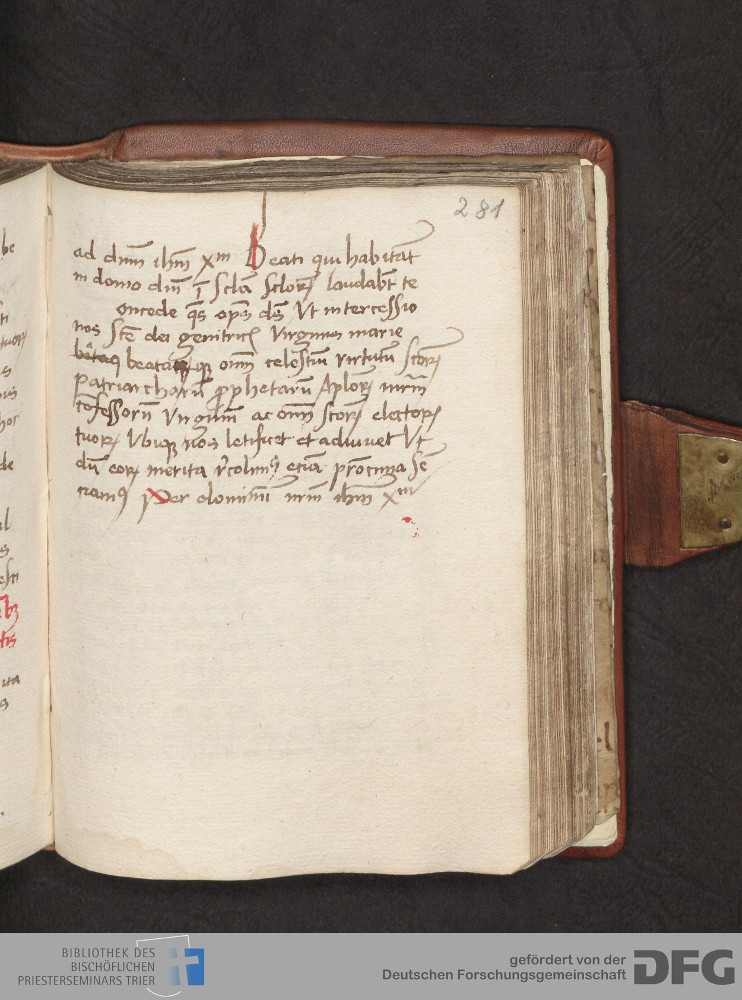 281
ad dnm̄ ihm̄ xm̄ Beati qui habitāt
in domo dm̄ ī scla sclor laudabt̄ te
oncede qs̄ ops̄ ds̄ Vt intercessio
nos Stē dei genitricis Virginis marie
beataq oīm celestiū virtutū Scor
patriarcharū prophetarū Aplor mrm̄
cōfessorū Virginū ac oīm scor elector
tuor Vbiqȝ nos letificet et adiuuet Vt
dū eor merita recolimꝰ eciā
ciamꝰ Per dominū nrm̄ ihm̄ xm̄
be
hor
de
ita
BIBLIOTHEK DES
BISCHÖFLICHEN
PRIESTERSEMINARS TRIER
gefördert von der
Deutschen Forschungsgemeinschaft
DFG